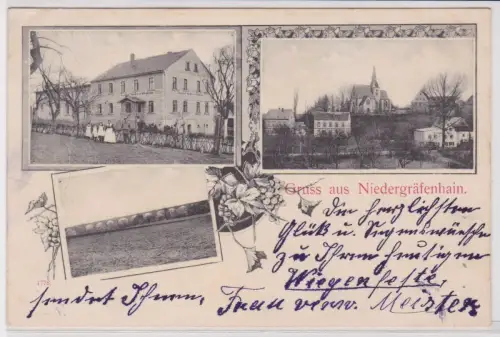 Gruss aus Niedergräfenhain.
Die herzlichsten
Glück u. Segenswünsche
zu Ihrem heutigen
Wiegenfeste,
sendet Ihnen,
Frau verw. Meister